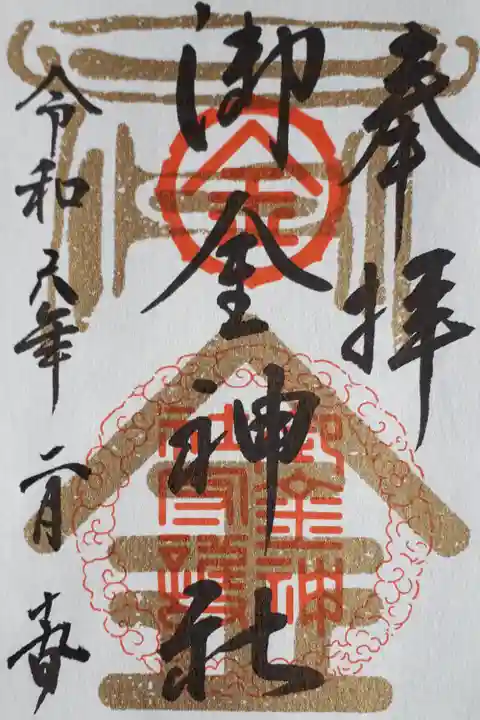 奉拝
御金神社
令和六年二月 春
金
御金神